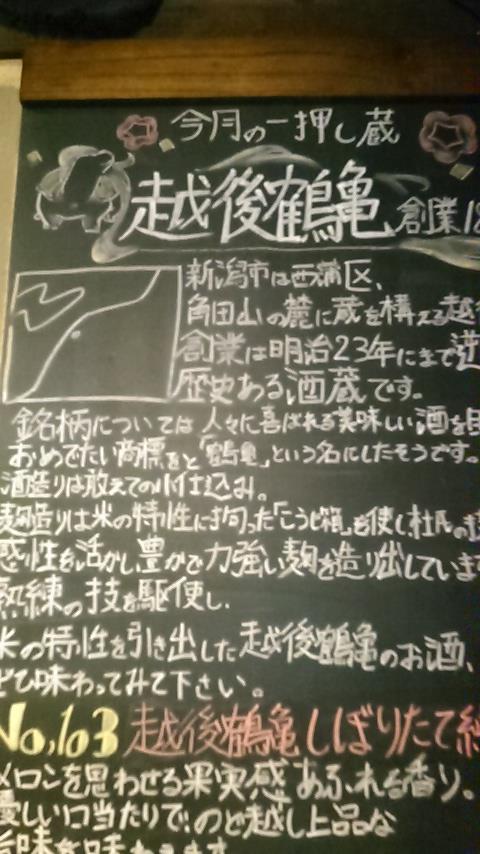 今月の一押し蔵
越後鶴亀 創業18
新潟市は西蒲区、
角田山の麓に蔵を構える越
創業は明治23年にまで逆
歴史ある酒蔵です。
銘柄については人々に喜ばれる美味しい酒を目
おめでたい商標をと「鶴亀」という名にしたそうです。
酒造りは敢えての小仕込み。
麹造りは米の特性に拘った「こうじ箱」を使し、杜氏の
感性を活かし豊かで力強い麹を造り出しています
熟練の技を駆使し、
米の特性を引き出した越後鶴亀のお酒、
ぜひ味わってみて下さい。
No,103 越後鶴亀 しぼりたて純
メロンを思わせる果実感あふれる香り。
優しい口当たりで、のど越し上品な
旨味を味わえます